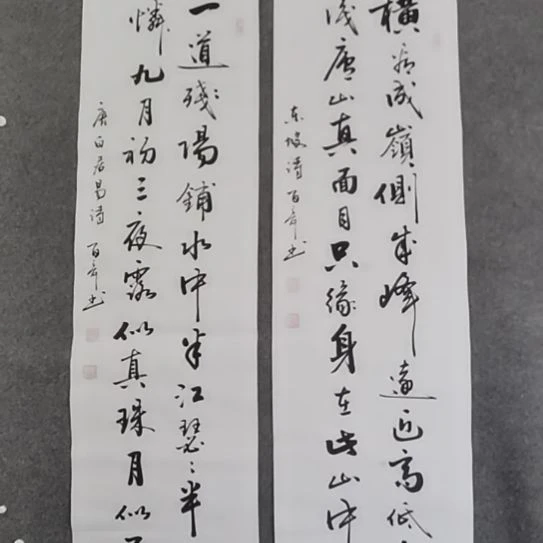 橫看成嶺側成峰遠近高低
識廬山真面目只緣身在此山中
東坡詩 百年书
一道殘陽鋪水中半江瑟瑟半
憐九月初三夜露似真珠月似
唐白居易詩 百年书